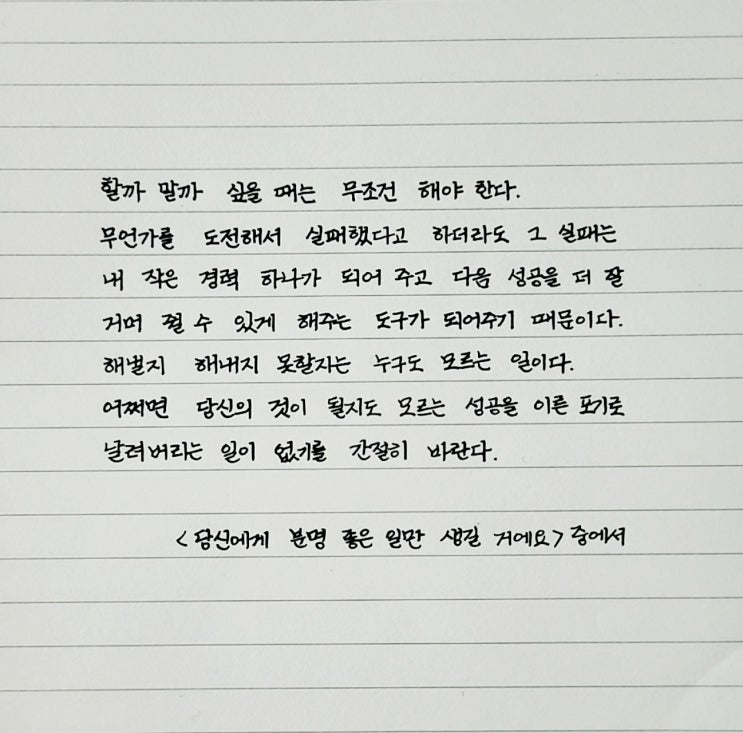 할까 말까 싶을 때는 무조건 해야 한다.
무언가를 도전해서 실패했다고 하더라도 그 실패는
내 작은 경력 하나가 되어 주고 다음 성공을 더 잘
거머 쥘 수 있게 해주는 도구가 되어주기 때문이다.
해낼지 해내지 못할지는 누구도 모르는 일이다.
어쩌면 당신의 것이 될지도 모르는 성공을 이른 포기로
날려버리는 일이 없기를 간절히 바란다.
<당신에게 분명 좋은 일만 생길 거에요> 중에서